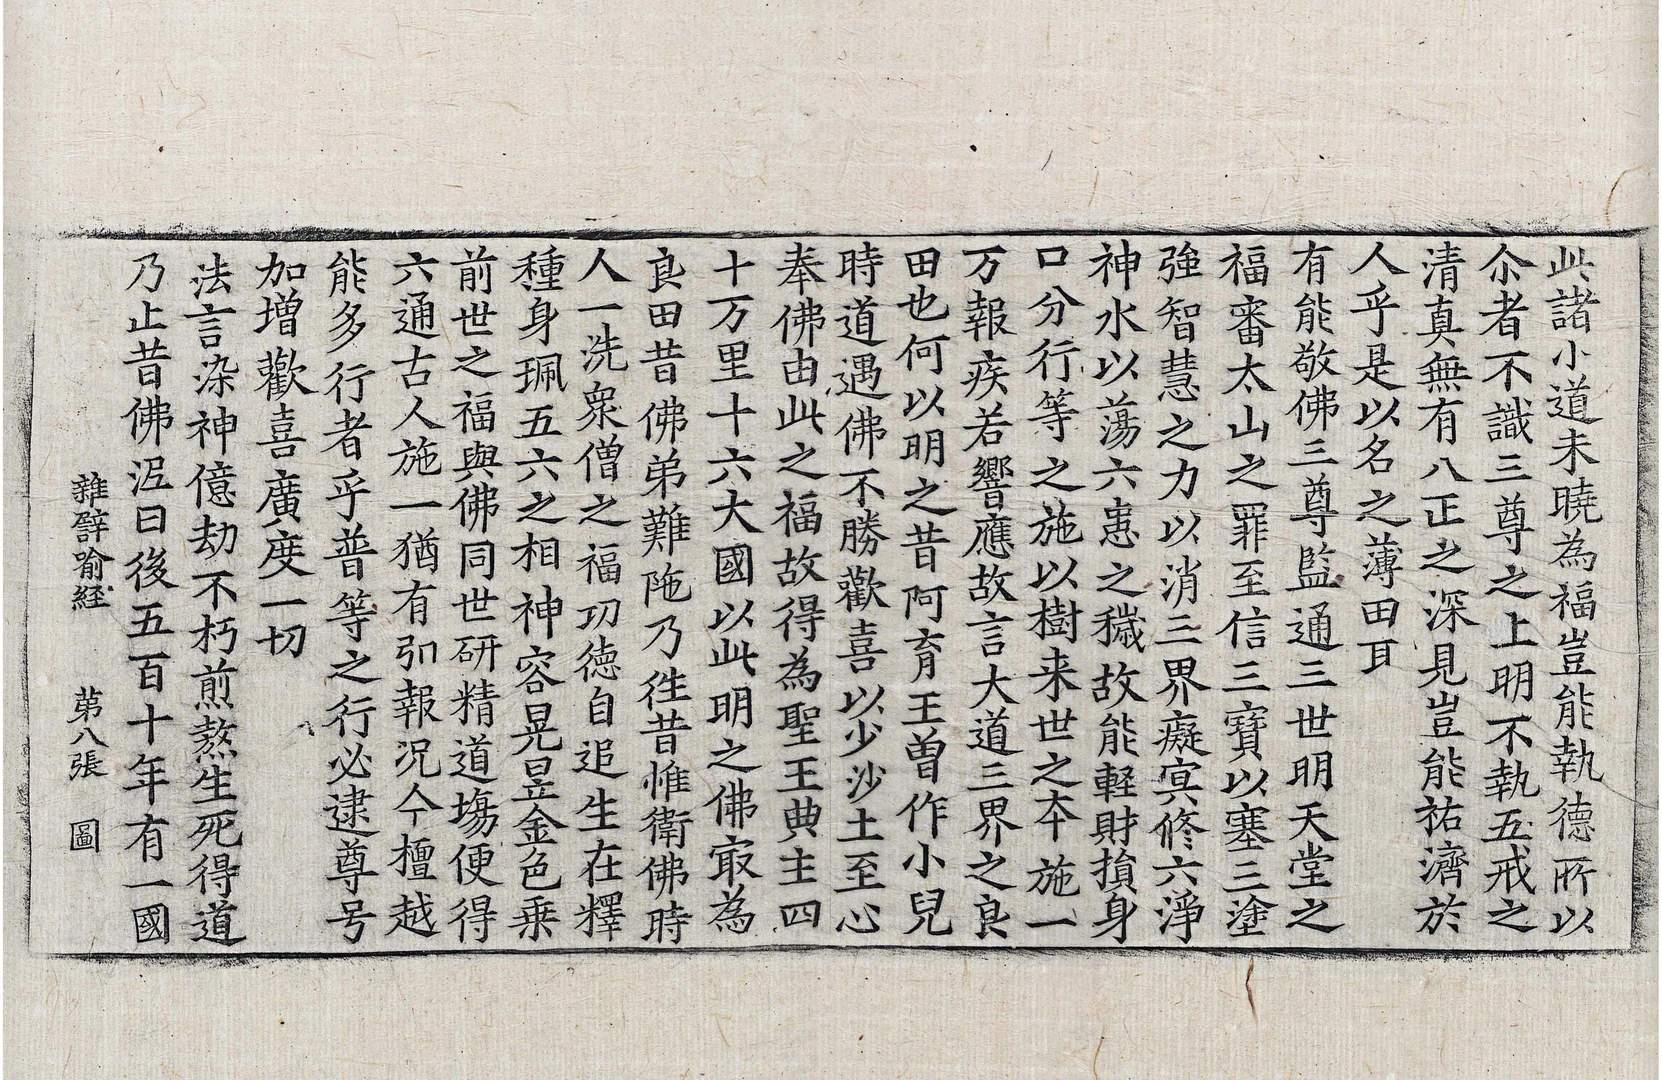 此諸小道未曉為福豈能執德所以
尒者不識三尊之上明不執五戒之
清真無有八正之深見豈能祐濟於
人乎是以名之薄田耳
有能敬佛三尊監通三世明天堂之
福審太山之罪至信三寶以塞三塗
強智慧之力以消三界癡冥修六淨
神水以蕩六恚之穢故能輕財損身
口分行等之施以樹来世之夲施一
万報疾若響應故言大道三界之良
田也何以明之昔阿育王曽作小兒
時道遇佛不勝歡喜以少沙土至心
奉佛由此之福故得為聖王典主四
十万里十六大國以此明之佛冣為
良田昔佛弟難陁乃徃昔惟衛佛時
人一洗衆僧之福功德自追生在釋
種身珮五六之相神容晃昱金色乗
前世之福與佛同世研精道塲便得
六通古人施一猶有引報況今檀越
能多行者乎普等之行必逮尊号
加增歡喜廣度一切
法言染神億劫不朽煎熬生死得道
乃止昔佛泥曰後五百十年有一國
雜譬喻経 苐八張 圖